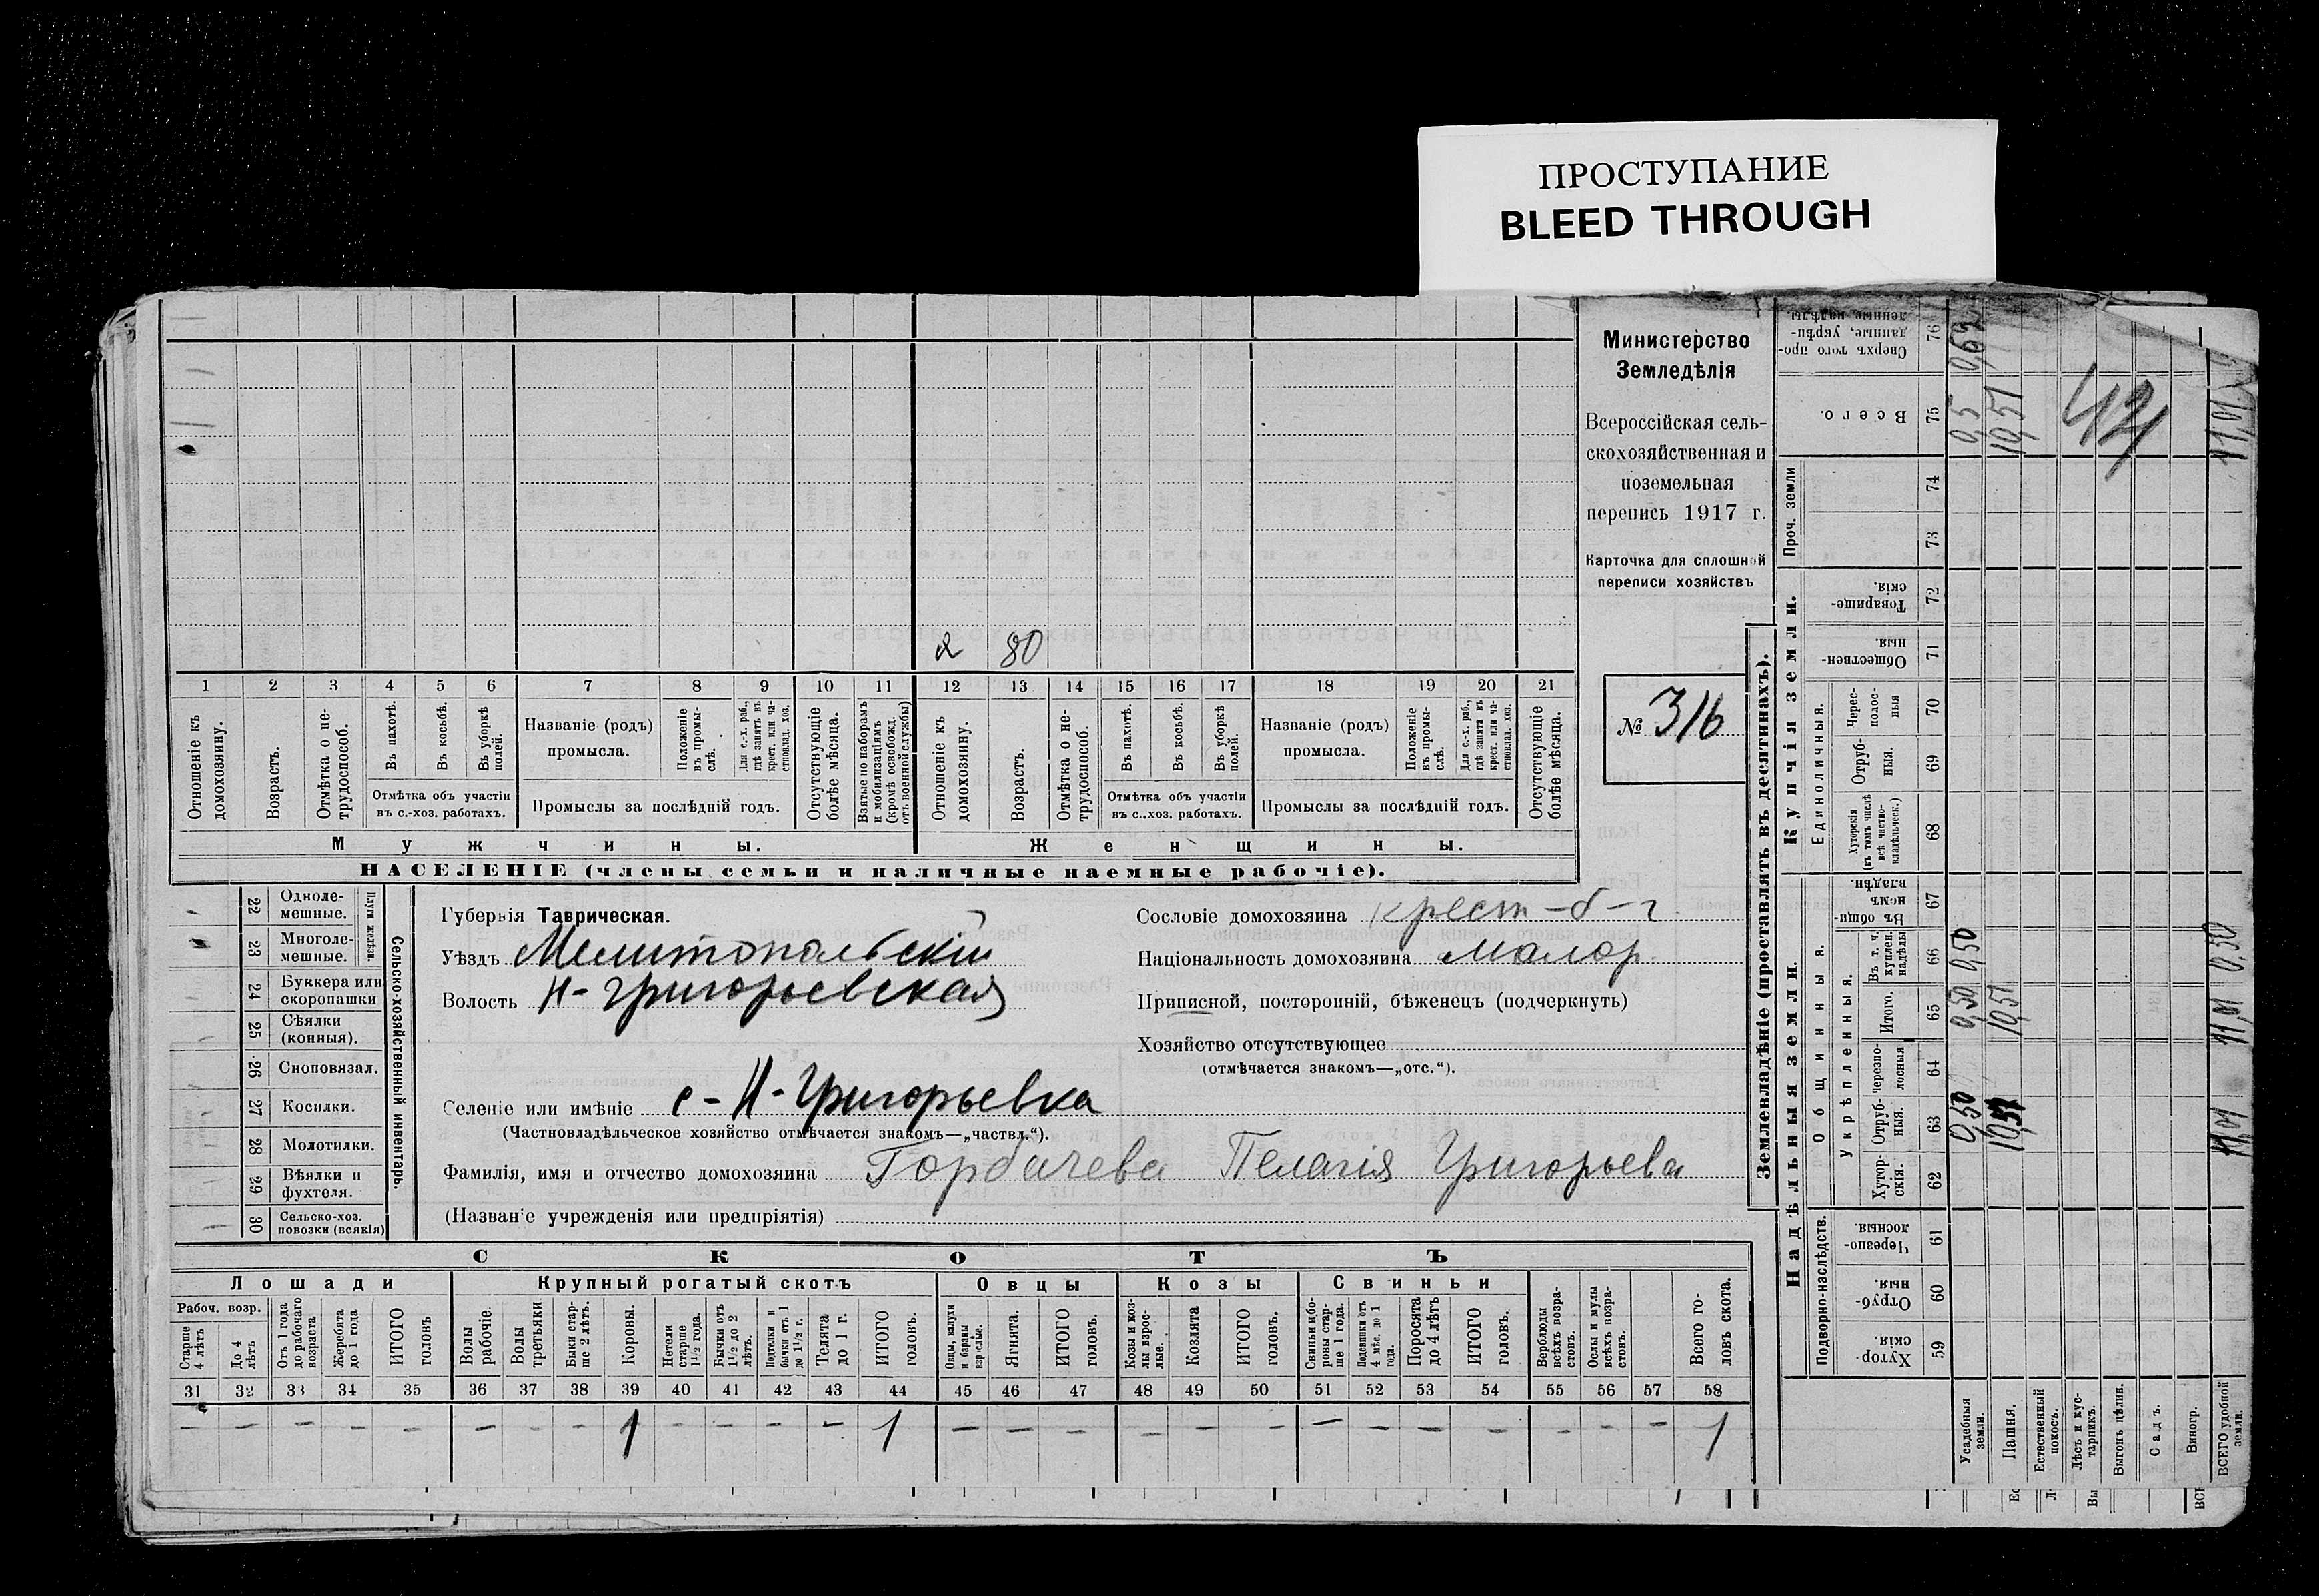 ПРОСТУПАНИЕ
BLEED THROUGH
Министерство
Земледѣлія
Всероссійская сель-
скохозяйственная и
поземельная
перепись 1917 г.
Карточка для сплошной
переписи хозяйствъ
№ 316
я 80
1 2 3 4 5 6 7 8 9 10 11 12 13 14 15 16 17 18 19 20 21
Отношеніе къ домохозяину.
Возрастъ.
Отмѣтка о не-трудоспособ.
Въ пахотѣ.
Въ косьбѣ.
Въ уборкѣ полей.
Отмѣтка объ участіи
въ с.-хоз. работахъ.
Названіе (родъ)
промысла.
Положеніе въ промы-слѣ.
Для с.-х. раб., гдѣ занятъ въ крест. или ча-стновлад. хоз.
Промыслы за послѣдній годъ.
Отсутствующіе болѣе мѣсяца.
Взятые по наборамъ и мобилизаціямъ (кромѣ освобожд. отъ военной службы)
Отношеніе къ домохозяину.
Возрастъ.
Отмѣтка о не-трудоспособ.
Въ пахотѣ.
Въ косьбѣ.
Въ уборкѣ полей.
Отмѣтка объ участіи
въ с.-хоз. работахъ.
Названіе (родъ)
промысла.
Положеніе въ промы-слѣ.
Для с.-х. раб., гдѣ занята въ крест. или ча-стновлад. хоз.
Промыслы за послѣдній годъ.
Отсутствующіе болѣе мѣсяца.
Мужчины. Женщины.
НАСЕЛЕНІЕ (члены семьи и наличные наемные рабочіе).
Сельско-хозяйственный инвентарь.
Плуги желѣзн.
22 Одноле-мешные.
23 Многоле-мешные.
24 Буккера или скоропашки
25 Сѣялки (конныя).
26 Сноповязал.
27 Косилки.
28 Молотилки.
29 Вѣялки и фухтеля.
30 Сельско-хоз. повозки (всякія)
Губернія Таврическая.
Уѣздъ Мелитопольскій
Волость Н-Григорьевская
Сословіе домохозяина крест-б-г
Національность домохозяина малор.
Приписной, посторонній, бѣженецъ (подчеркнуть)
Хозяйство отсутствующее
(отмѣчается знакомъ—„отс.“).
Селеніе или имѣніе с-Н-Григорьевка
(Частновладѣльческое хозяйство отмѣчается знакомъ—„частвл.“).
Фамилія, имя и отчество домохозяина Горбачева Пелагія Григорьева
(Названіе учрежденія или предпріятія)
СКОТЪ
Лошади Крупный рогатый скотъ Овцы Козы Свиньи
Рабоч. возр.
Старше 4 лѣтъ
До 4 лѣтъ
Отъ 1 года до рабочаго возраста
Жеребята до 1 года
ИТОГО головъ
Волы рабочіе.
Волы третьяки
Быки стар-ше 2 лѣтъ.
Коровы.
Нетели старше 1½ года.
Бычки отъ 1½ до 2 лѣтъ.
Подтелки и бычки отъ 1 до 1½ г.
Телята до 1 г.
ИТОГО головъ.
Овцы, валухи и бараны взрослые.
Ягнята.
ИТОГО головъ.
Козы и коз-лы взрос-лые.
Козлята
ИТОГО головъ.
Свиньи и бо-ровы стар-ше 1 года.
Подсвинки отъ 4 мѣс. до 1 года.
Поросята до 4 мѣс.
ИТОГО головъ.
Верблюды всѣхъ возра-стовъ.
Ослы и мулы всѣхъ возра-стовъ.
Всего го-ловъ скота.
31 32 33 34 35 36 37 38 39 40 41 42 43 44 45 46 47 48 49 50 51 52 53 54 55 56 57 58
– – – – – – – – 1 – – – – 1 – – – – – – – – – – – – – 1
Землевладѣніе (проставлять въ десятинахъ).
Надѣльныя земли. Купчія земли. Проч. земли
Подворно-наслѣдств. Общинныя. Укрѣпленныя. Единоличныя.
59 Хутор-скія.
60 Отруб-ныя.
61 Черезпо-лосныя
62 Хутор-скія.
63 Отруб-ныя. 0,50 10,51 11,01
64 Черезпо-лосныя
65 Итого. 0,50 10,51 11,01
66 Въ т. ч. куплен. надѣлы 0,50 0,50
67 Въ общи-номъ владѣн.
68 Хуторскія (въ томъ числѣ всѣ частно-владѣльческ.)
69 Отруб-ныя.
70 Черес-полос-ныя
71 Обществен-ныя.
72 Товарище-скія.
73
74
75 Всего. 0,5 10,51 11,01
76 Сверхъ того про-данные, укрѣп-ленные надѣлы. 0,62
42
Усадебныя земли.
Пашня.
Естественный покосъ.
Лѣсъ и кус-тарникъ.
Выгонъ цѣлин.
Садъ.
Виногр.
ВСЕГО удобной земли.